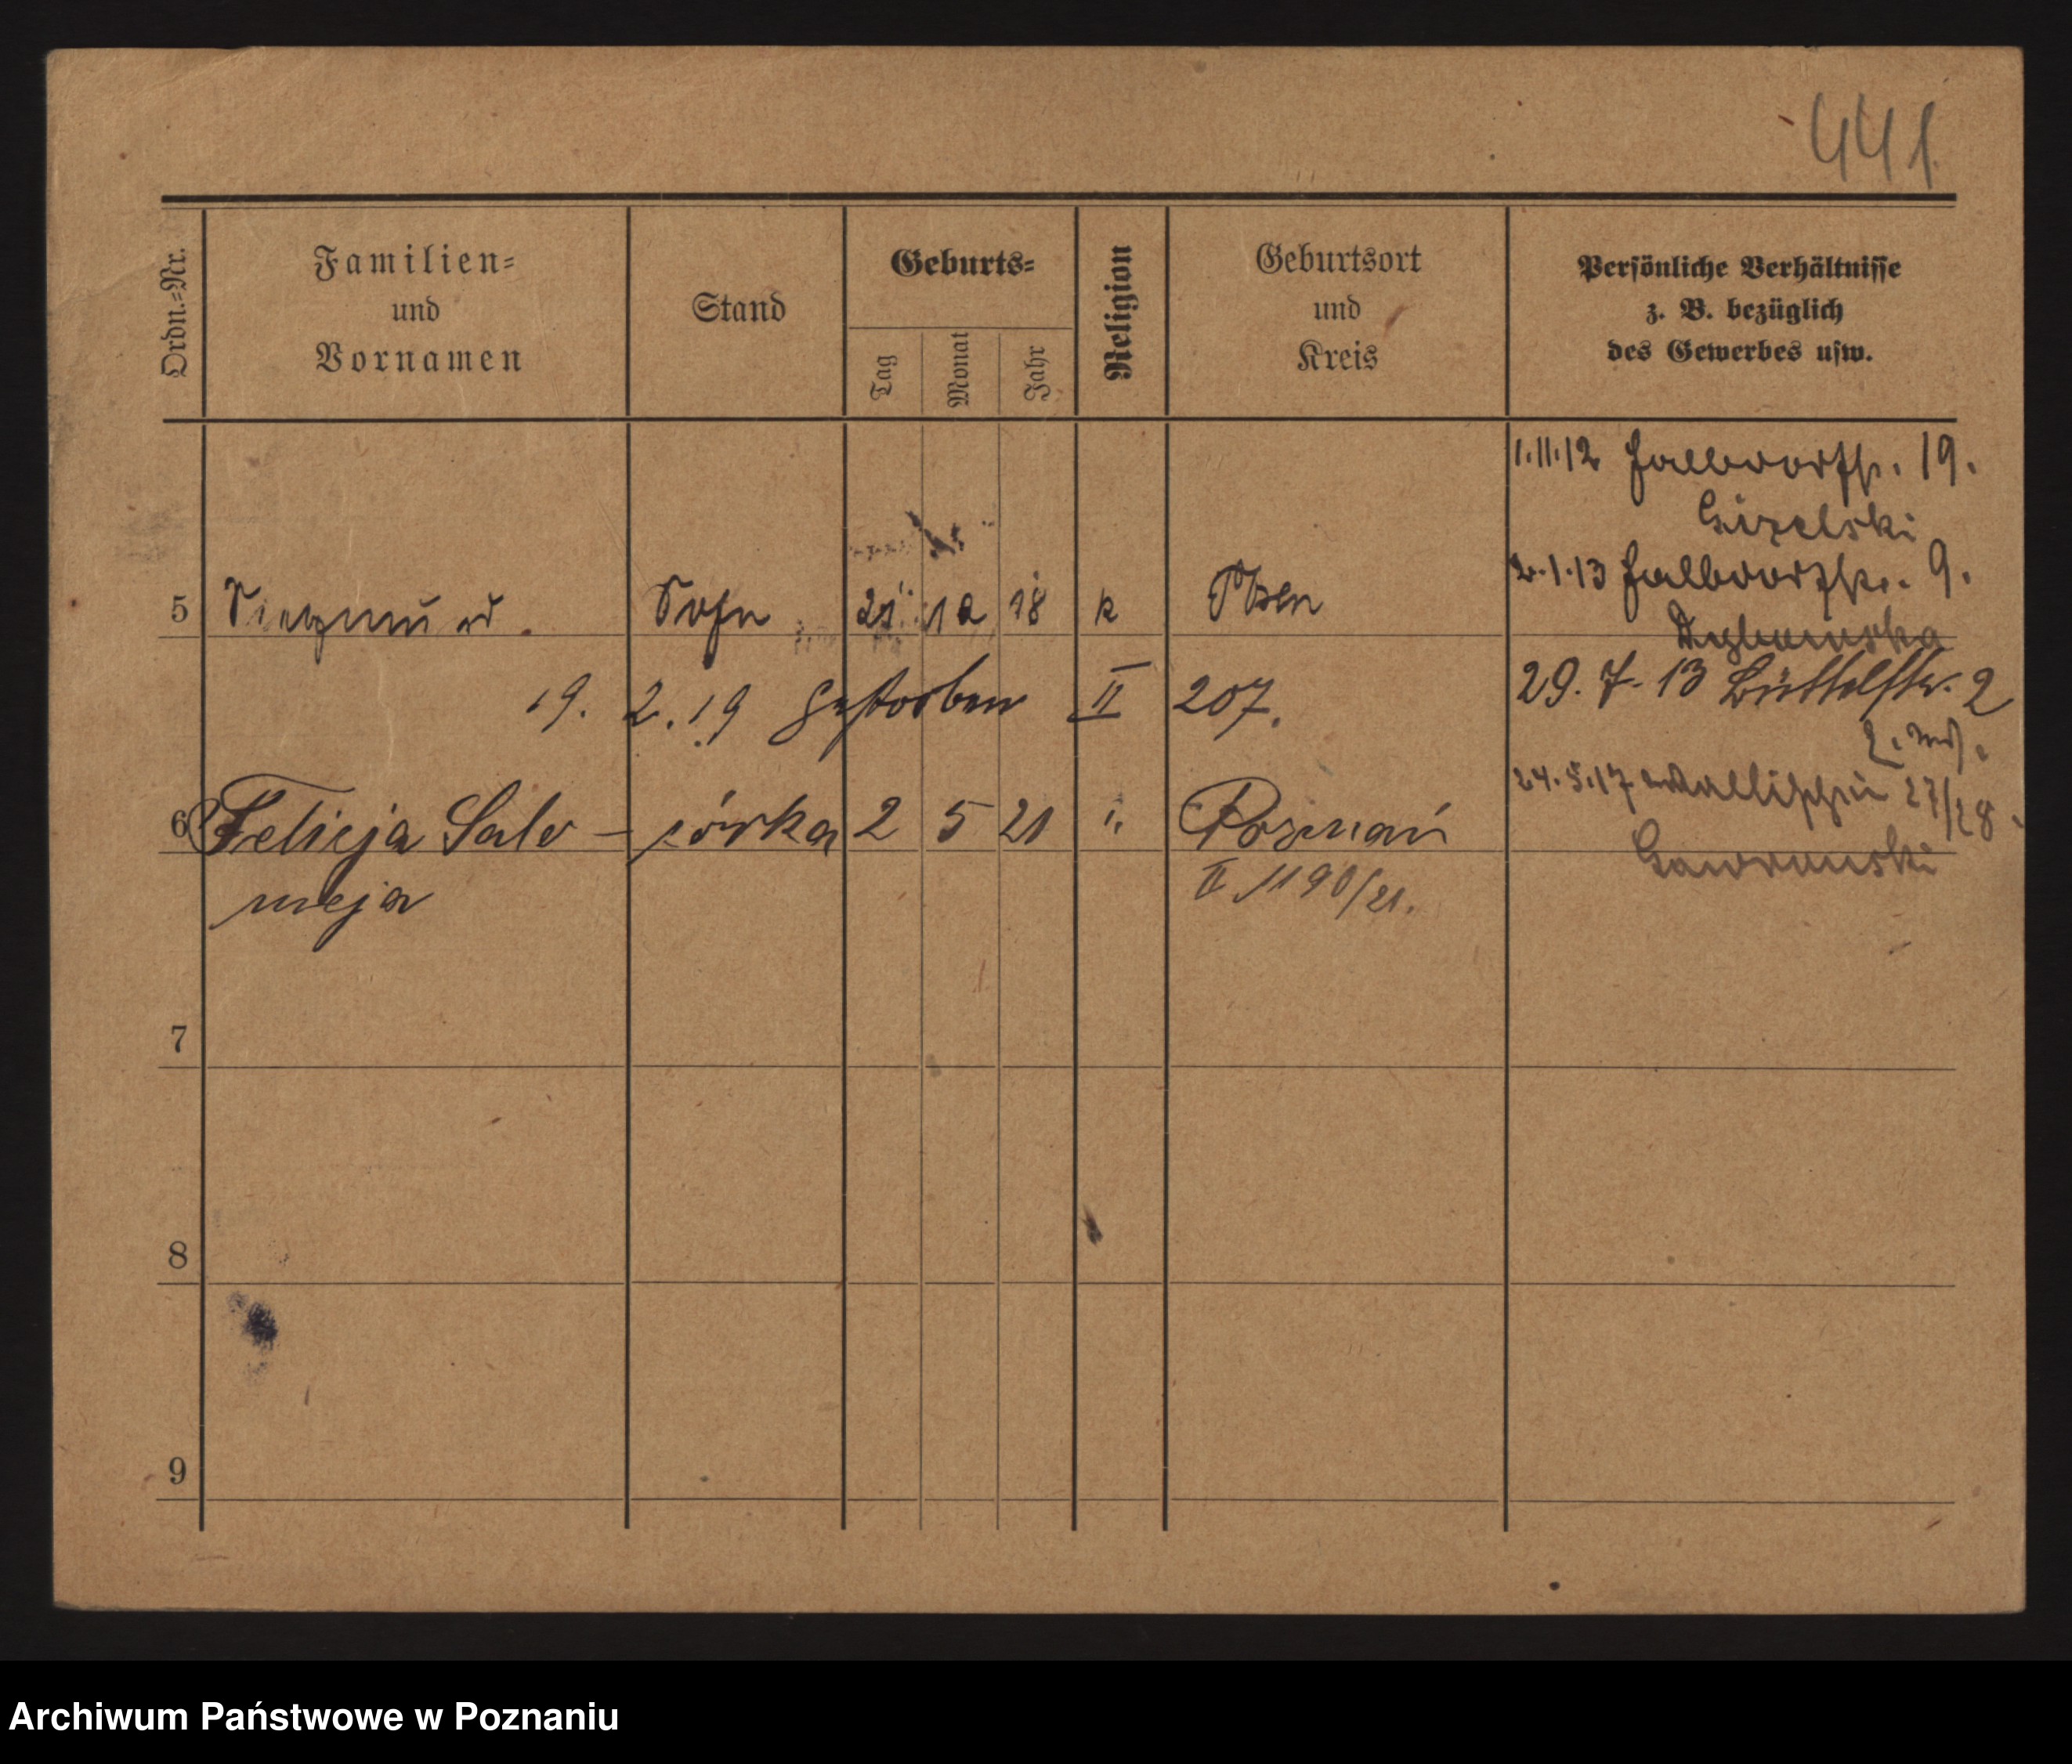 441
Ordn.=Nr.
Familien=
und
Vornamen
Stand
Geburts=
Tag
Monat
Jahr
Religion
Geburtsort
und
Kreis
Persönliche Verhältnisse
z. B. bezüglich
des Gewerbes usw.
1.11.12 Halbdorfstr. 19.
2.1.13 Halbdorfstr. 9.
5 Siegmund Sohn 21 12 18 k Posen
19. 2. 19 gestorben II 207.
29. 7. 13 Büttelstr. 2
24.5.17 Wallischei 27/28.
6 Felicja Salo- córka 2 5 21 " Poznań
meja II 1190/21.
7
8
9
Archiwum Państwowe w Poznaniu